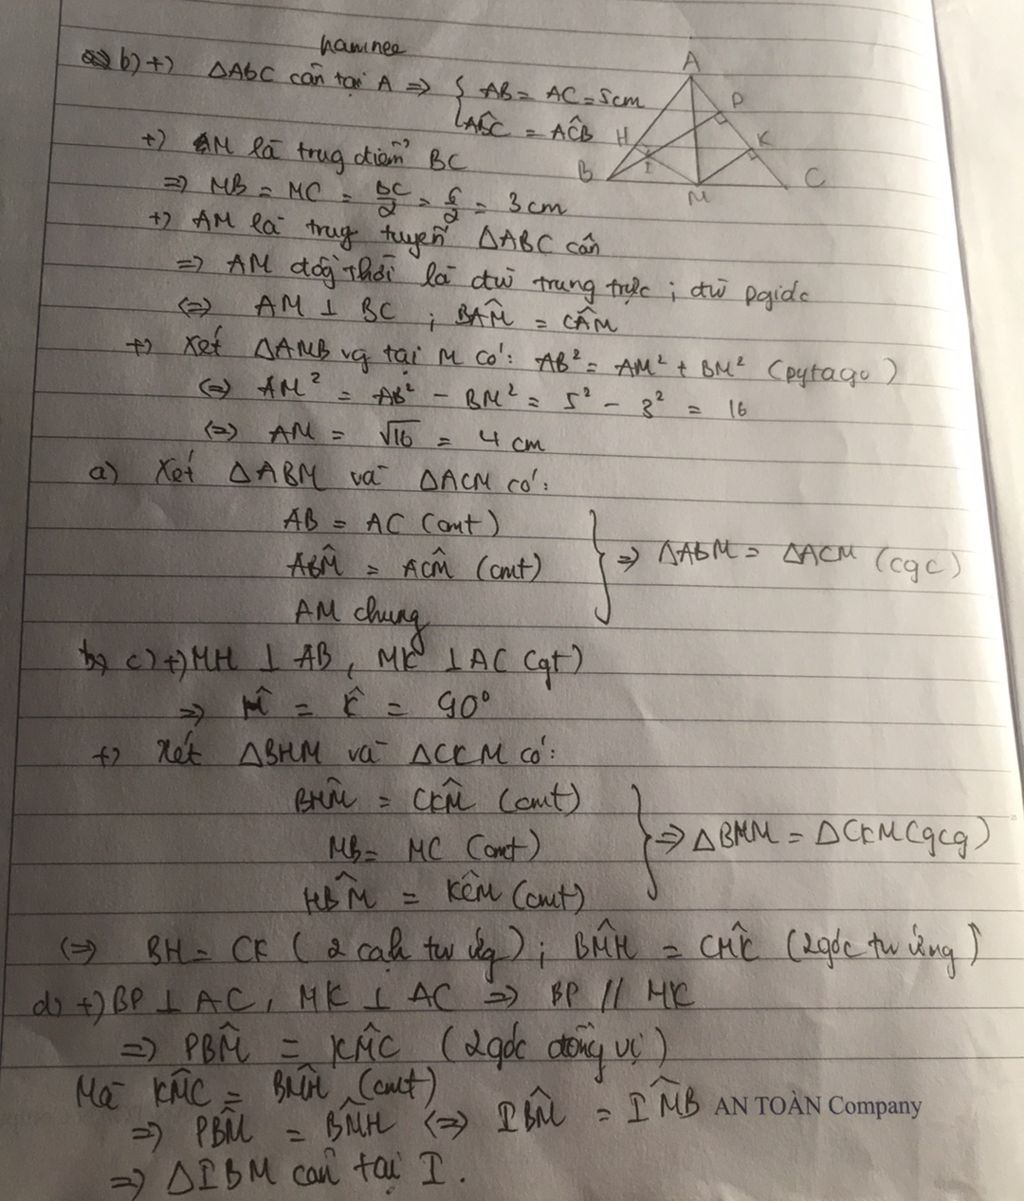 hamnee
b) +) ΔABC cân tại A => { AB = AC = 5cm
ABC^ = ACB^
A
P
H
K
I
B
M
C
+) M là trug điểm BC
=> MB = MC = BC/2 = 6/2 = 3cm
+) AM là trug tuyến ΔABC cân
=> AM đồg thời là đườ trung trực ; đườ pgiác
<=> AM ⊥ BC ; BÂM = CÂM
+) Xét ΔAMB vg tại M có: AB² = AM² + BM² (pytago)
<=> AM² = AB² - BM² = 5² - 3² = 16
<=> AM = √16 = 4 cm
a) Xét ΔABM và ΔACM có:
AB = AC (cmt)
ABM^ = ACM^ (cmt)
AM chung
} => ΔABM = ΔACM (cgc)
c) +) MH ⊥ AB, MK ⊥ AC (gt)
=> H^ = K^ = 90°
+) Xét ΔBHM và ΔCKM có:
BHM^ = CKM^ (cmt)
MB = MC (cmt)
HBM^ = KCM^ (cmt)
} => ΔBHM = ΔCKM (gcg)
<=> BH = CK (2 cạh tư ứg) ; BMH^ = CMK^ (2góc tư ứng)
d) +) BP ⊥ AC, MK ⊥ AC => BP // MK
=> PBM^ = KMC^ (2góc đồng vị)
Mà KMC^ = BMH^ (cmt)
=> PBM^ = BMH^ <=> IBM^ = IMB^
AN TOÀN Company
=> ΔIBM cân tại I.